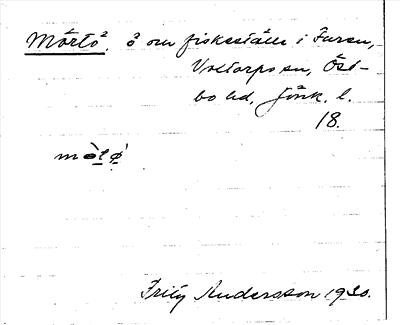 Mörtö, ö om fiskeställe i Furen,
Voxtorps sn, Öst-
bo hd, Jönk. l.
18.
mo̱lø
Fritz Andersson 1930.